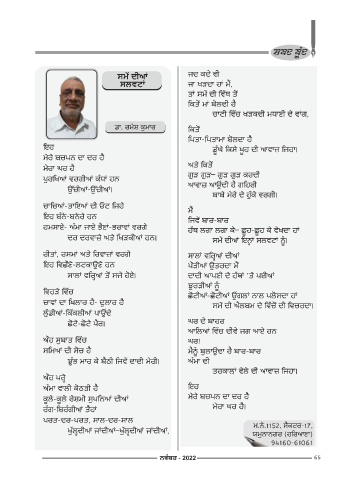 ਸ਼ਬਦ ਬੂੰਦ
ਸਮੇਂ ਦੀਆਂ
ਸਲਵਟਾਂ
ਡਾ. ਰਮੇਸ਼ ਕੁਮਾਰ
ਇਹ
ਮੇਰੇ ਬਚਪਨ ਦਾ ਦਰ ਹੈ
ਮੇਰਾ ਘਰ ਹੈ
ਪੁਰਖਿਆਂ ਵਰਗੀਆਂ ਕੰਧਾਂ ਹਨ
ਉੱਚੀਆਂ-ਉੱਚੀਆਂ।
ਚਾਚਿਆਂ-ਤਾਇਆਂ ਦੀ ਓਟ ਜਿਹੇ
ਇਹ ਬੰਨੇ-ਬਨੇਰੇ ਹਨ
ਹਮਸਾਏ- ਅੰਮਾ ਜਾਏ ਭੈਣਾਂ-ਭਰਾਵਾਂ ਵਰਗੇ
ਦਰ ਦਰਵਾਜ਼ੇ ਅਤੇ ਖਿੜਕੀਆਂ ਹਨ।
ਰੀਤਾਂ, ਰਸਮਾਂ ਅਤੇ ਰਿਵਾਜਾਂ ਵਰਗੇ
ਇਹ ਵਿਛੌਣੇ-ਲਟਕਾਉਣੇ ਹਨ
ਸਾਲਾਂ ਵਰ੍ਹਿਆਂ ਤੋਂ ਸਜੇ ਹੋਏ।
ਵਿਹੜੇ ਵਿੱਚ
ਚਾਵਾਂ ਦਾ ਖਿਲਾਰ ਹੈ- ਦੁਲਾਰ ਹੈ
ਲੁੱਡੀਆਂ-ਕਿੱਕਲੀਆਂ ਪਾਉਂਦੇ
ਛੋਟੇ-ਛੋਟੇ ਪੈਰ।
ਔਹ ਸੁਬਾਤ ਵਿੱਚ
ਸਮਿਆਂ ਦੀ ਸੇਚ ਹੈ
ਚੁੰਝ ਮਾਰ ਕੇ ਬੈਠੀ ਜਿਵੇਂ ਦਾਦੀ ਮੇਰੀ।
ਔਹ ਪਰ੍ਹੇ
ਅੰਮਾ ਵਾਲੀ ਕੋਠੜੀ ਹੈ
ਕੂਲੇ-ਕੂਲੇ ਰੇਸ਼ਮੀ ਸੁਪਨਿਆਂ ਦੀਆਂ
ਰੰਗ-ਬਿਰੰਗੀਆਂ ਤੈਹਾਂ
ਪਰਤ-ਦਰ-ਪਰਤ, ਸਾਲ-ਦਰ-ਸਾਲ
ਖੁੱਲ੍ਹਦੀਆਂ ਜਾਂਦੀਆਂ-ਖੁੱਲ੍ਹਦੀਆਂ ਜਾਂਦੀਆਂ,
ਜਦ ਕਦੇ ਵੀ
ਜਾ ਖੜਦਾ ਹਾਂ ਮੈਂ,
ਤਾਂ ਸਮੇਂ ਦੀ ਵਿੱਥ ਤੋਂ
ਕਿਤੋਂ ਮਾਂ ਬੋਲਦੀ ਹੈ
ਚਾਟੀ ਵਿੱਚ ਖੜਕਦੀ ਮਧਾਣੀ ਦੇ ਵਾਂਗ,
ਕਿਤੋਂ
ਪਿਤਾ-ਪਿਤਾਮਾ ਬੋਲਦਾ ਹੈ
ਡੂੰਘੇ ਕਿਸੇ ਖੂਹ ਦੀ ਆਵਾਜ਼ ਜਿਹਾ।
ਅਤੇ ਕਿਤੋਂ
ਗੁੜ ਗੁੜ- ਗੁੜ ਗੁੜ ਕਰਦੀ
ਆਵਾਜ਼ ਆਉਂਦੀ ਹੈ ਗਹਿਰੀ
ਬਾਬੇ ਮੇਰੇ ਦੇ ਹੁੱਕੇ ਵਰਗੀ।
ਮੈਂ
ਜਿਵੇਂ ਬਾਰ-ਬਾਰ
ਹੱਥ ਲਗਾ ਲਗਾ ਕੇ- ਛੂਹ-ਛੂਹ ਕੇ ਵੇਖਦਾ ਹਾਂ
ਸਮੇਂ ਦੀਆਂ ਇਨ੍ਹਾਂ ਸਲਵਟਾਂ ਨੂੰ।
ਸਾਲਾਂ ਵਰ੍ਹਿਆਂ ਦੀਆਂ
ਪੌੜੀਆਂ ਉਤਰਦਾ ਮੈਂ
ਦਾਦੀ ਆਪਣੀ ਦੇ ਹੱਥਾਂ 'ਤੇ ਪਈਆਂ
ਝੁਰੜੀਆਂ ਨੂੰ
ਛੋਟੀਆਂ-ਛੋਟੀਆਂ ਉਂਗਲਾਂ ਨਾਲ ਪਲੋਸਦਾ ਹਾਂ
ਸਮੇਂ ਦੀ ਐਲਬਮ ਦੇ ਵਿੱਚੋਂ ਦੀ ਵਿਚਰਦਾ।
ਘਰ ਦੇ ਬਾਹਰ
ਆਲਿਆਂ ਵਿੱਚ ਦੀਵੇ ਜਗ ਆਏ ਹਨ
ਘਰ।
ਮੈਨੂੰ ਬੁਲਾਉਂਦਾ ਹੈ ਬਾਰ-ਬਾਰ
ਅੰਮਾ ਦੀ
ਤਰਕਾਲਾਂ ਵੇਲੇ ਦੀ ਆਵਾਜ਼ ਜਿਹਾ।
ਇਹ
ਮੇਰੇ ਬਚਪਨ ਦਾ ਦਰ ਹੈ
ਮੇਰਾ ਘਰ ਹੈ।
ਮ.ਨੰ.1152, ਸੈਕਟਰ-17,
ਯਮੁਨਾਨਗਰ (ਹਰਿਆਣਾ)
94160-61061
ਨਵੰਬਰ - 2022
65